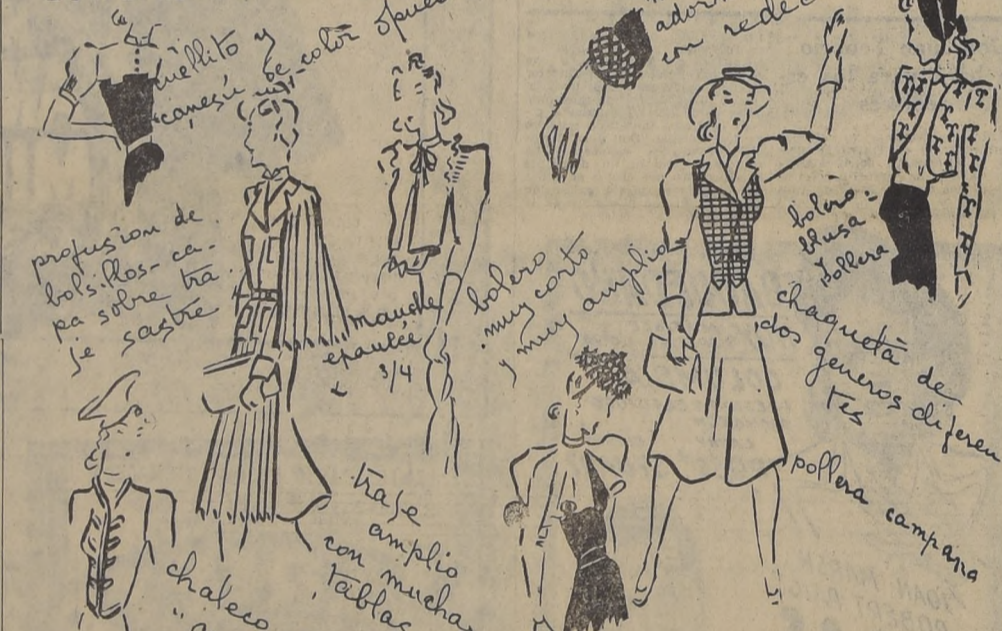 cuellito y
canesú de color opues
adorn
con rede
profusion de
bolsillos-ca-
pa sobre tra
je sastre
manche
epaulée
y 3/4
bolero
muy corto
y muy amplio
bolero=
blusa
y
pollera
chaqueta de
dos generos diferen
tes
pollera campana
traje
amplio
con mucha
tablas
chaleco